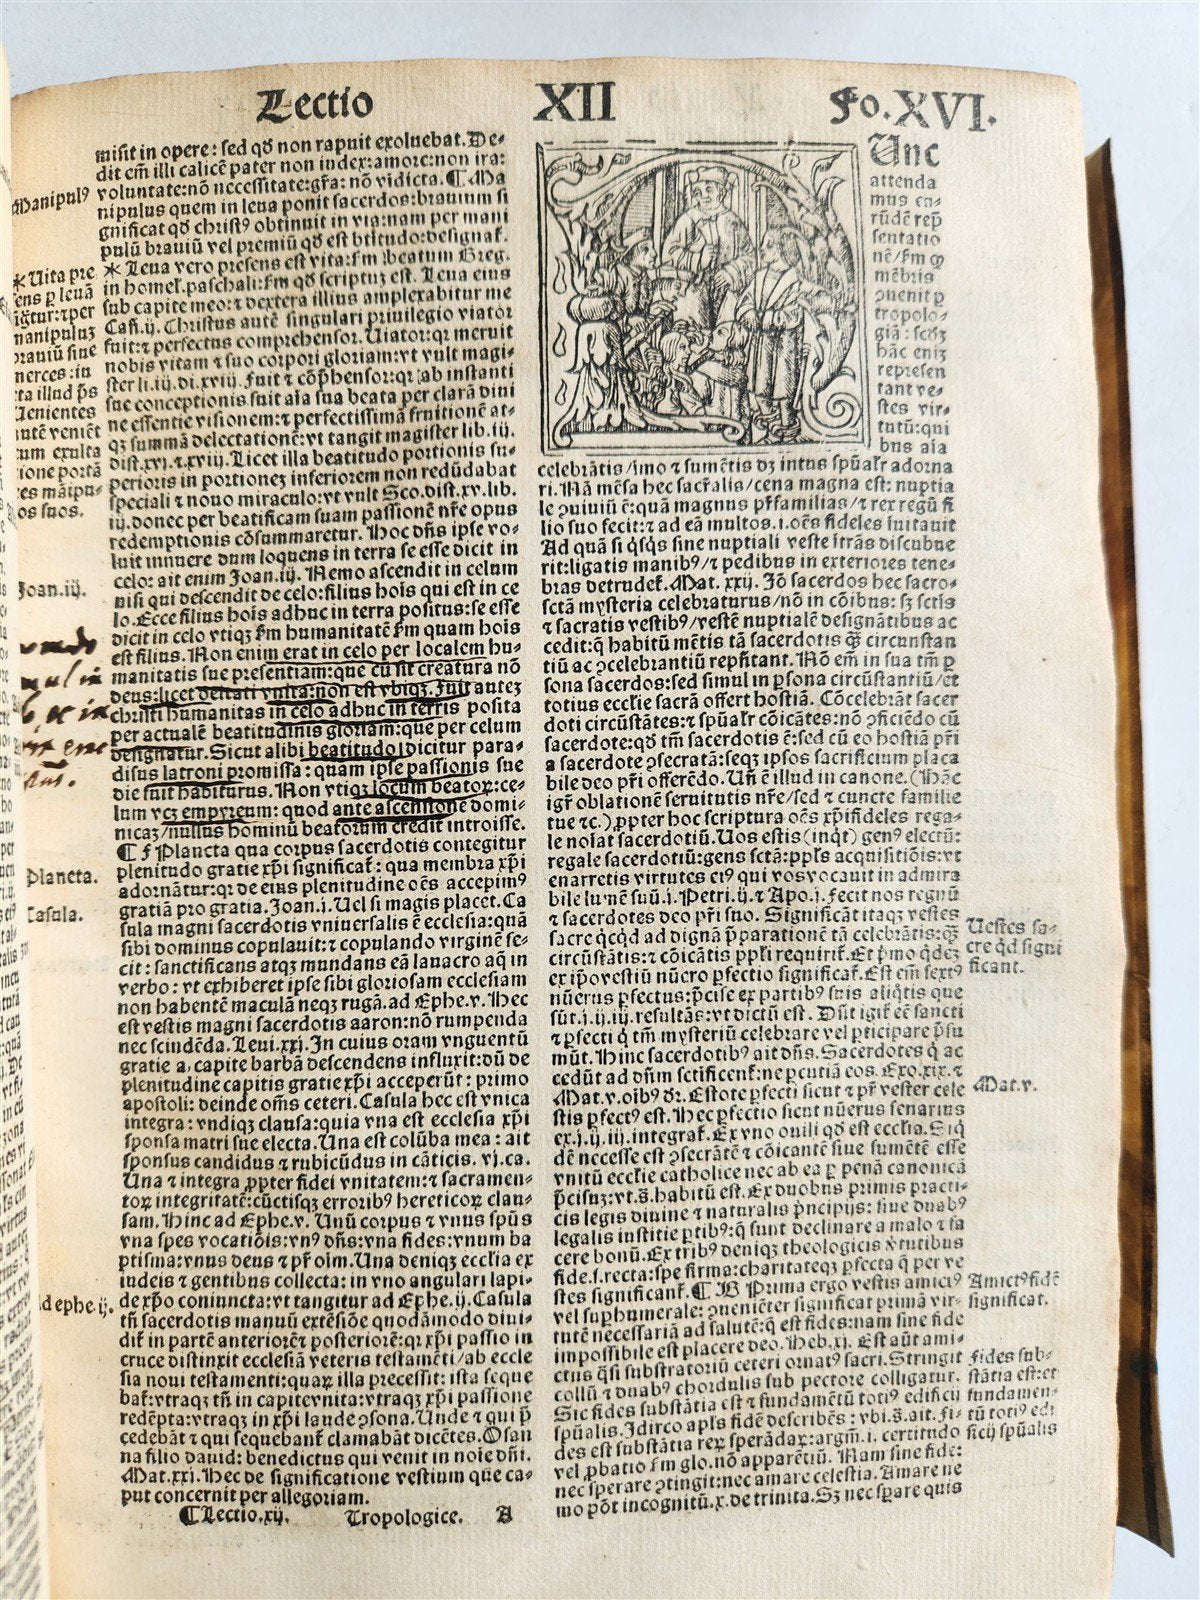 Lectio XII Fo.XVI.
misit in opere: sed qđ non rapuit exoluebat. De-
dit em̄ illi calicē pater non index: amore: non ira:
voluntate: nō necessitate: gr̄a: nō vidicta. ¶ Ma
nipulus quem in leua ponit sacerdos: brauium si
gnificat qđ christꝰ obtinuit in via: nam per mani
pulū brauiū vel premiū qđ est btitudo: designat᷑.
* Leua vero presens est vita: ẜm beatum Greg.
in homel. paschali: ẜm qđ scriptuȝ est. Leua eius
sub capite meo: ⁊ dextera illius amplexabitur me
Cañ.ij. Christus autē singulari priuilegio viator
fuit: ⁊ perfectus comprehensor. Uiator: qꝛ meruit
nobis vitam ⁊ suo corpori gloriam: vt vult magi-
ster li.iij.di.xviij. Fuit ⁊ cōp̄hensor: qꝛ ab instanti
sue conceptionis fuit aīa sua beata per clarā diui
ne essentie visionem: ⁊ perfectissimā fruitionē at-
qȝ summā delectationē: vt tangit magister lib.iij.
dist.xvj.⁊.xviij. Licet illa beatitudo portionis su-
perioris in portioneȝ inferiorem non redūdabat
speciali ⁊ nouo miraculo: vt vult Sco.dist.xv.lib.
iij. donec per beatificam suam passionē nr̄e opus
redemptionis cōsummaretur. Hoc dn̄s ipse vo-
luit innuere dum loquens in terra se esse dicit in
celo: ait enim Joan.iij. Nemo ascendit in celum
nisi qui descendit de celo: filius hoīs qui est in ce
lo. Ecce filius hoīs adhuc in terra positus: se esse
dicit in celo vtiqȝ ẜm humanitatē ẜm quam hoīs
est filius. Non enim erat in celo per localem hu-
manitatis sue presentiam: que cū sit creatura nō
deus: licet deitati vnita: non est vbiqȝ. Fuit auteȝ
christi humanitas in celo adhuc in terris posita
per actualē beatitudinis gloriam: que per celum
designatur. Sicut alibi beatitudo dicitur para-
disus latroni promissa: quam ipse passionis sue
die fuit habiturus. Non vtiqȝ locum beatoꝝ: ce-
lum vcȝ empyreum: quod ante ascensionē domi-
nicaȝ / nullus hominū beatorum credit introisse.
¶ F Planeta qua corpus sacerdotis contegitur
plenitudo gratie xp̄i significat᷑: qua membra xp̄i
adornātur: qꝛ de eius plenitudine oēs accepimꝰ
gratiā pro gratia. Joan.j. Uel si magis placet. Ca
sula magni sacerdotis vniuersalis ē ecclesia: quā
sibi dominus copulauit: ⁊ copulando virginē fe-
cit: sanctificans atqȝ mundans eā lauacro aq̄ in
verbo: vt exhiberet ipse sibi gloriosam ecclesiam
non habentē maculā neqȝ rugā. ad Ephe.v. Hec
est vestis magni sacerdotis aaron: nō rumpenda
nec scindēda. Leui.xxj. In cuius oram vnguentū
gratie a capite barbā descendens influxit: dū de
plenitudine capitis gratie xp̄i acceperūt: primo
apostoli: deinde om̄s ceteri. Casula hec est vnica
integra: vndiqȝ clausa: quia vna est ecclesia xp̄i
sponsa matri sue electa. Una est colūba mea: ait
sponsus candidus ⁊ rubicūdus in cāticis.vj.ca.
Una ⁊ integra ꝓpter fidei vnitatem: ⁊ sacramen-
toꝝ integritatē: cūctisqȝ erroribꝰ hereticoꝝ clau-
sam. Hinc ad Ephe.v. Unū corpus ⁊ vnus spūs
vna spes vocatiōis: vnꝰ dn̄s: vna fides: vnum ba
ptisma: vnus deus ⁊ pr̄ oīm. Una deniqȝ ecclīa ex
iudeis ⁊ gentibus collecta: in vno angulari lapi-
de xp̄o coniuncta: vt tangitur ad Ephe.ij. Casula
tn̄ sacerdotis manuū extēsiōe quodāmodo diui-
dit᷑ in partē anteriorē ⁊ posteriorē: qꝛ xp̄i passio in
cruce distinxit ecclesiā veteris testamēti / ab eccle
sia noui testamenti: quaꝝ illa precessit: ista seque
bat᷑: vtraqȝ tn̄ in capite vnita: vtraqȝ xp̄i passione
redēpta: vtraqȝ in xp̄i laude ↄsona. Unde ⁊ qui p̄
cedebāt ⁊ qui sequebant᷑ clamabāt dicētes. Osan
na filio dauid: benedictus qui venit in noīe dn̄i.
Mat.xxj. Hec de significatione vestium que ca-
put concernit per allegoriam.
¶ Lectio.xij. Tropologice. A
Manipulꝰ
* Uita pre
manipuluȝ
brauiū siue
merces: in
Uenientes
Joan.iij.
Planeta.
Casula.
Ad ephe.ij.
Unc
attenda
mus en-
rūdē rep̄
sentatio
nē / ẜm ꝙ
mēbris
ↄuenit ꝑ
tropolo-
giā: scđȝ
hāc eniȝ
represen
tant ve-
stes vir-
tutū: qui
bus aīa
celebrātis / imo ⁊ sumētis dȝ intus spūalr̄ adorna
ri. Nā mēsa hec sacr̄alis / cena magna est: nuptia
le ↄuiuiū ē: quā magnus pr̄familias / ⁊ rex regū fi
lio suo fecit: ⁊ ad eā multos.i.oēs fideles inuitauit
Ad quā si q̇sq̇s sine nuptiali veste ītrās discubue
rit: ligatis manibꝰ / ⁊ pedibus in exteriores tene-
bras detrudet᷑. Mat.xxij. Jō sacerdos hec sacro-
sctā mysteria celebraturus / nō in cōibus: sȝ sctis
⁊ sacratis vestibꝰ / vestē nuptialē designātibus ac
cedit: q̄ habitū mētis tā sacerdotis qȝ circunstan
tiū ac ↄcelebrantiū repn̄tant. Nō em̄ in sua tm̄ ꝑ
sona sacerdos: sed simul in ꝑsona circūstantiū / et
totius ecclīe sacrā offert hostiā. Cōcelebrāt sacer
doti circūstātes: ⁊ spūalr̄ cōicātes: nō ↄficiēdo cū
sacerdote: qđ tm̄ sacerdotis ē: sed cū eo hostiā pr̄i
a sacerdote ↄsecratā: seqȝ ipsos sacrificium placa
bile deo pr̄i offerēdo. Un̄ ē illud in canone. (Hāc
igr̄ oblationē seruitutis nr̄e / sed ⁊ cuncte familie
tue ⁊c.) ꝓpter hoc scriptura oēs xp̄ifideles rega-
le noīat sacerdotiū. Uos estis (inq̇t) genꝰ electū:
regale sacerdotiū: gens sctā: ppl̄s acquisitiōis: vt
enarretis virtutes eiꝰ qui vos vocauit in admira
bile lumē suū.j. Petri.ij. ⁊ Apo.j. fecit nos regnū
⁊ sacerdotes deo pr̄i suo. Significāt itaqȝ vestes
sacre q̇cq̇d ad dignā p̄parationē tā celebrātis: qȝ
circūstātis: ⁊ cōicātis ppl̄i requirit᷑. Et p̄mo q̇deȝ
ex ip̄o vestiū nūero ꝑfectio significat᷑. Est em̄ sextꝰ
nūerus ꝑfectus: p̄cise ex partibꝰ suis aliq̇tis que
sūt.j.ij.iij. resultās: vt dictū est. Dn̄t igit᷑ eē sancti
⁊ ꝑfecti q̇ tm̄ mysteriū celebrare vel ꝑticipare p̄su
mūt. Hinc sacerdotibꝰ ait dn̄s. Sacerdotes q̇ ac
cedūt ad dn̄m sctificent᷑: ne ꝑcutiā eos. Exo.xix. ⁊
Mat.v. oībꝰ dr̄. Estote ꝑfecti sicut ⁊ pr̄ vester cele
stis ꝑfectꝰ est. Hec ꝑfectio sicut nūerus senarius
ex.j.ij.iij. integrat᷑. Ex vno ouili qđ est ecclīa. Siq̇
dē necesse est ↄsecrātē ⁊ cōicantē siue sumētē esse
vnitū ecclīe catholice nec ab ea ꝑ penā canonicā
p̄cisuȝ: vt.s̄. habitū est. Ex duobus primis practi-
cis legis diuine ⁊ naturalis p̄ncipijs: siue duabꝰ
legalis institie ꝑtibꝰ: q̄ sunt declinare a malo ⁊ fa
cere bonū. Ex tribꝰ deniqȝ theologicis v̓tutibus
fide.s.recta: spe firma: charitateqȝ ꝑfecta q̄ per ve
stes significant᷑. ¶ B Prima ergo vestis amictꝰ
vel suꝑhumerale: ↄueniēter significat primā vir-
tutē necessariā ad salutē: q̄ est fides: nam sine fide
impossibile est placere deo. Heb.xj. Est aūt ami-
ctus q̄si substratoriū ceteri ornatꝰ sacri. Stringit
collū ⁊ duabꝰ chordulis sub pectore colligatur.
Sic fides substātia est ⁊ fundamētū totiꝰ edificij
spūalis. Jdirco apl̄s fidē describēs: vbi.s̄.ait. Fi-
des est substātia reꝝ sperādaꝝ: argm̄.i. certitudo
vel ꝓbatio ẜm glo. nō apparētiū. Nam sine fide:
nec sperare ↄtingit: nec amare celestia. Amare ne
mo pōt incognitū.x.de trinita. Sȝ nec sꝑare quis
Uestes sa-
cre q̇d signi
ficant.
Mat.v.
Amictꝰ fidē
significat.
Fides sub-
stātia est: et
fundamen-
tū totiꝰ edi
ficij spūalis